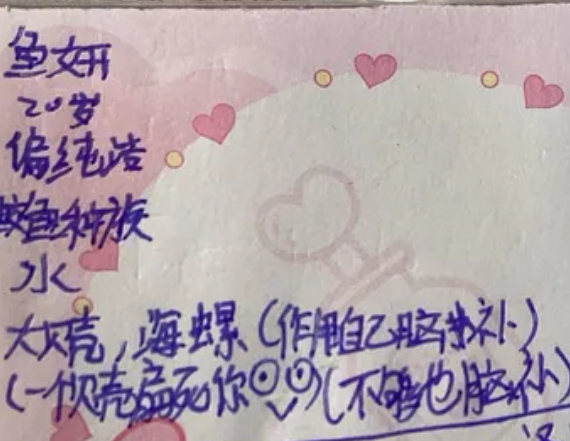 鱼妍
20岁
偏纯洁
鲛鱼种族
水
大贝壳，海螺（作用自己脑补）
（一个贝壳扇死你（不够也脑补）